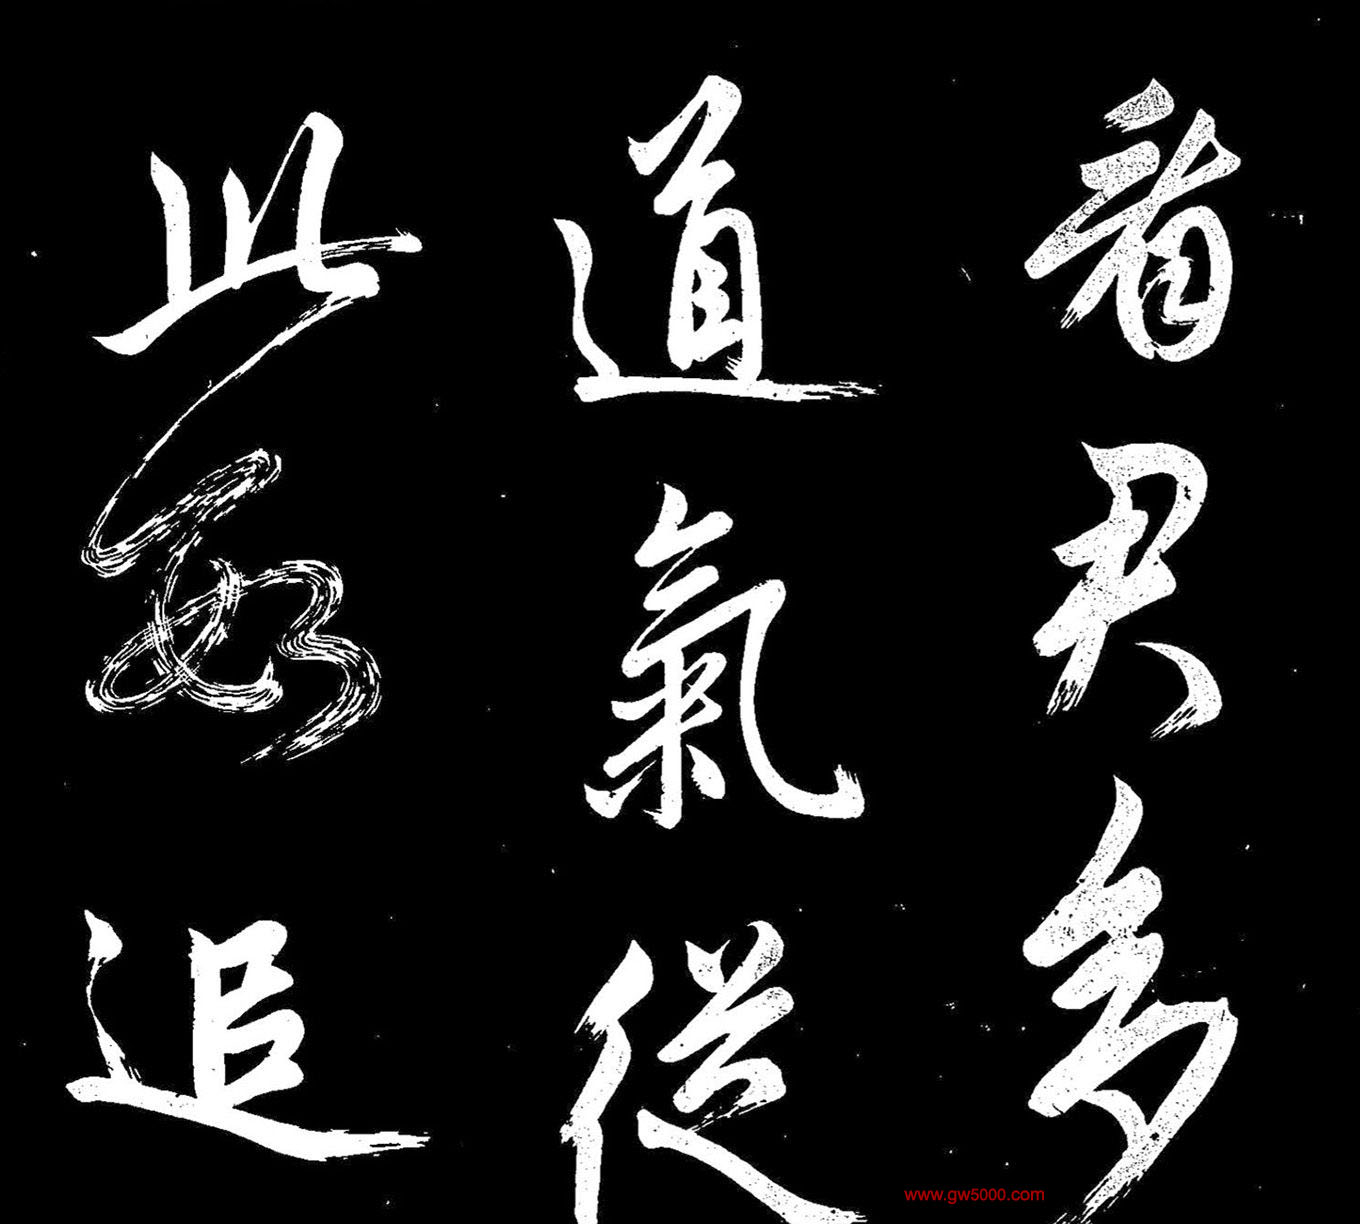 看君多
道氣從
此數追
www.gw5000.com